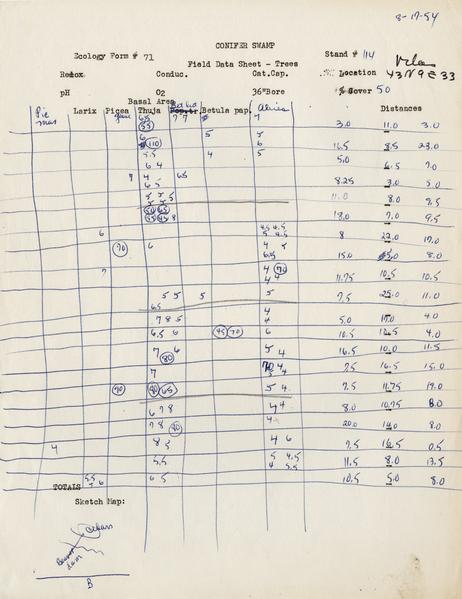 8-17-54
CONIFER SWAMP
Ecology Form # 71 Stand # 114
Field Data Sheet - Trees Vilas
Redox Conduc. Cat.Cap. Location 43 N 9 E 33
pH O2 36"Bore % Cover 50
Basal Area Distances
Pic mar Larix Picea glau Thuja Bet lut Pop.tr. Betula pap. Abies
65 7 7 7 3.0 11.0 3.0
(55)
6 5 5
(110) 6 16.5 8.5 23.0
5.5 4 5 5.0
6 4 6.5 7.0
7 4 65
6 5 8.25 3.0 5.0
5 5 5 11.0 8.0 9.5
(50) (65)
(55) (45) 8 18.0 7.0 9.5
6 4.5 4.5 8 22.0 17.0
5 4.5
(70) 6 4 5 15.0 8.0
6.5
7 4 (70) 11.75 10.5 10.5
4 4
5 5 5 5 7.5 25.0 11.0
6.5
7 8 5 4 5.0 17.0 4.0
4
6.5 6 (45) (70) 6 10.5 12.5 4.0
7 6 5 4 16.5 10.0 11.5
(80)
7 4 25 16.5 15.0
(90) (80) (65) 5 4 7.5 11.75 19.0
6 7 8 4 4 8.0 10.75 8.0
7 8 (80) 4 20.0 14.0 8.0
4 8 5 4 6 7.5 16.5 0.5
5.5 5 4.5 11.5 8.0 13.5
4 5.5
5.5 6 6 5 10.5 5.0 8.0
TOTALS
Sketch Map:
Beaver
dam
B